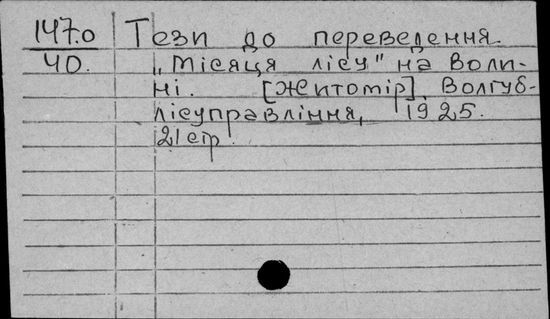 147.0 Тези до переведення
40. „Місяця лісу" на Воли-
ні. [Житомір]. Волгуб-
лісуправління, 1925.
21 стр.